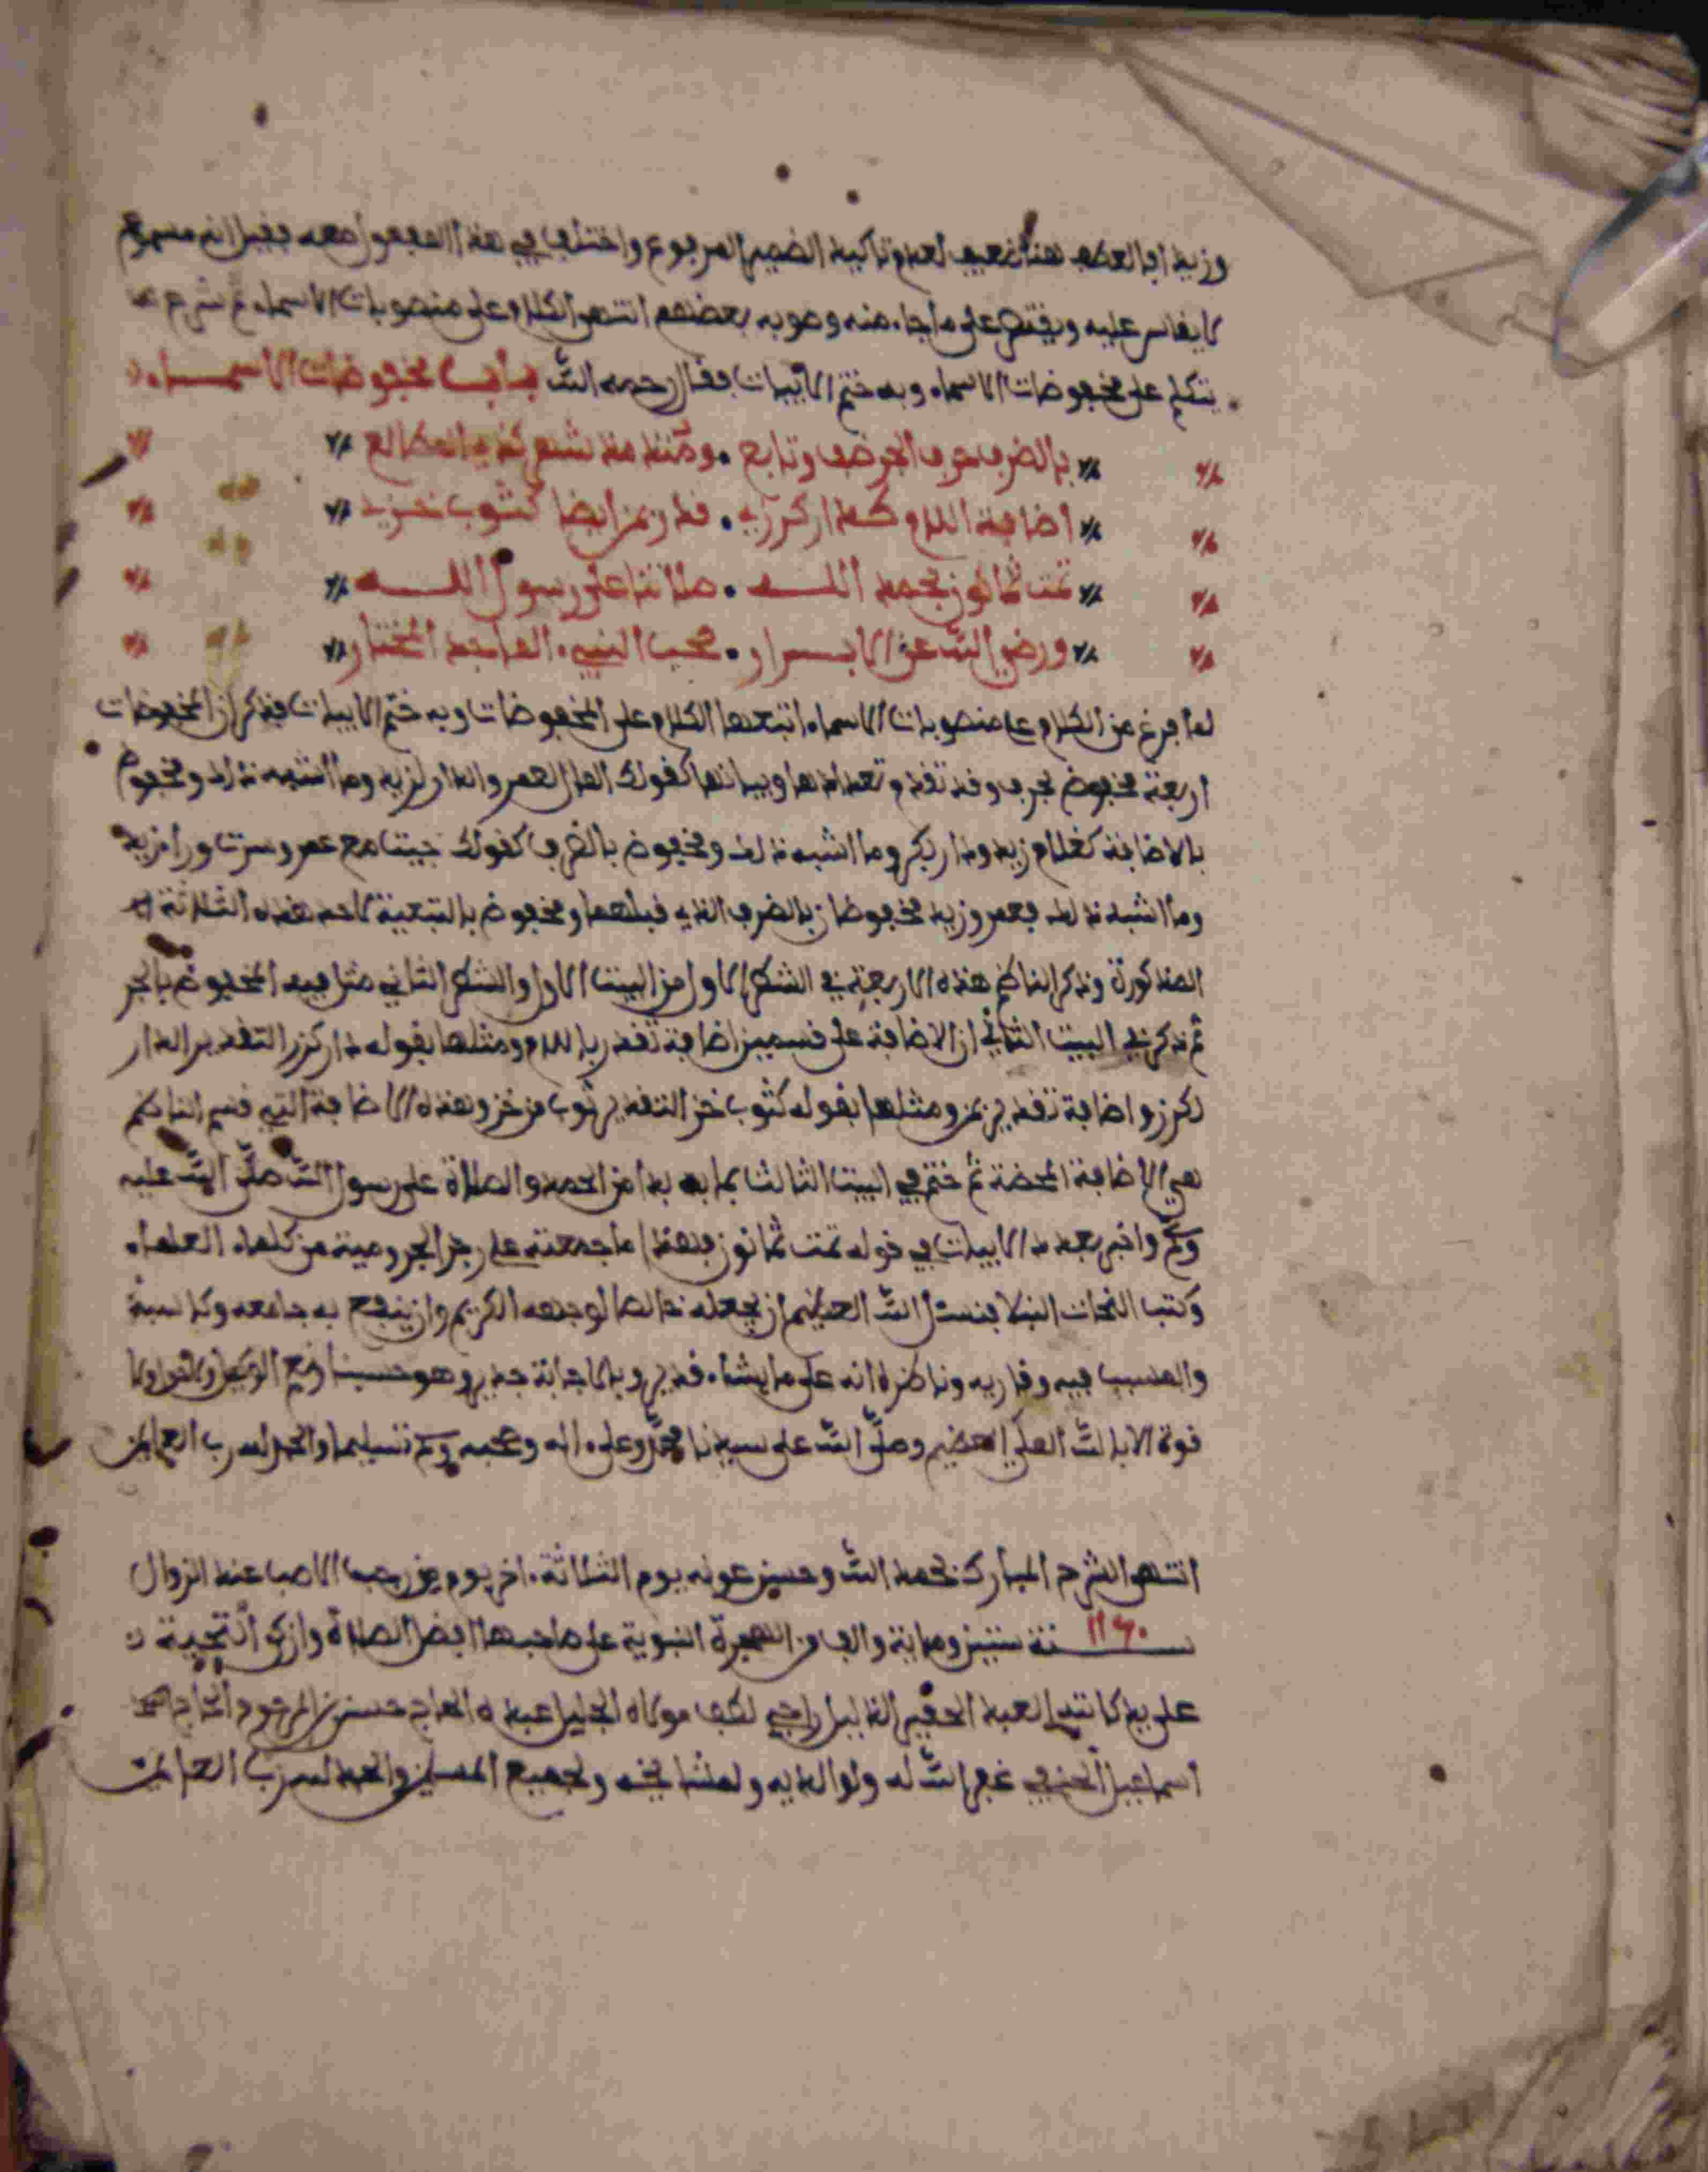 وزيد اذ العطف هنا ضعيف لعدم تاكيد الضمير المرفوع واختلف في هذا المفعول معه فقيل انه مسموع
لا يقاس عليه ويقتصر على ما جاء منه وصوبه بعضهم انتهى الكلام على منصوبات الاسماء ثم شرع
يتكلم على مخفوضات الاسماء وبه ختم الابيات فقال رحمه الله باب مخفوضات الاسماء
بالضرف حرف الجر ضف وتابع . ومنذ مذ
اضافة اللام كدار كرز . قدر بمن ايضا كثوب خز
تمت ثمانون بحمد الله . صلاتنا على رسول الله
ورضي الله عن الابرار . صحب النبي الماجد المختار
لما فرغ من الكلام على منصوبات الاسماء اتبعها الكلام على المخفوضات وبه ختم الابيات فذكر ان المخفوضات
اربعة مخفوض بحرف وقد تقدم تعدادها وبيانها كقولك المال لعمرو والدار لزيد وما اشبه ذلك ومخفوض
بالاضافة كغلام زيد ودار بكر وما اشبه ذلك ومخفوض بالضرف كقولك جيت مع عمرو وسرت ورا زيد
وما اشبه ذلك فعمرو وزيد مخفوضان بالضرف الذي قبلهما ومخفوض بالتبعية لاحد هذه الثلاثة
المذكورة وذكر الناظم هذه الاربعة في الشطر الاول من البيت الاول والشطر الثاني مثل فيه المخفوض بالجر
ثم ذكر في البيت الثاني ان الاضافة على قسمين اضافة تقدر باللام ومثلها بقوله دار كرز التقدير الدار
لكرز واضافة تقدير بمن ومثلها بقوله كثوب خز التقدير ثوب من خز وهذه الاضافة التي قسم الناظم
هي الاضافة المحضة ثم ختم في البيت الثالث بما به بدا من الحمد والصلاة على رسول الله صلى الله عليه
وسلم واخبر بعدد الابيات في قوله تمت ثمانون فهذا ما جمعته على رجز الجرومية من كلام العلماء
وكتب النحات النبلا فنسئل الله العظيم ان يجعله خالصا لوجهه الكريم وان ينفع به جامعه وكاسبه
والمسبب فيه وقاريه وناظره انه على ما يشاء قدير وبالاجابة جدير وهو حسبنا ونعم الوكيل ولا حول ولا
قوة الا بالله العلي العظيم وصلى الله على سيدنا محمد وعلى اله وصحبه وسلم تسليما والحمد لله رب العالمين
انتهى الشرح المبارك بحمد الله وحسن عونه يوم الثلاثة اخر يوم من رجب الاصب عند الزوال
١١٦٠
سنة ستين ومائة والف من الهجرة النبوية على صاحبها افضل الصلاة وازكى التحية
على يد كاتبه العبد الحقير الذليل راجي لطف مولاه الجليل عبده الحاج حسن بن المرحوم الحاج محمد
اسماعيل الحنفي غفر الله له ولوالديه ولمشايخه ولجميع المسلمين والحمد لله رب العالمين